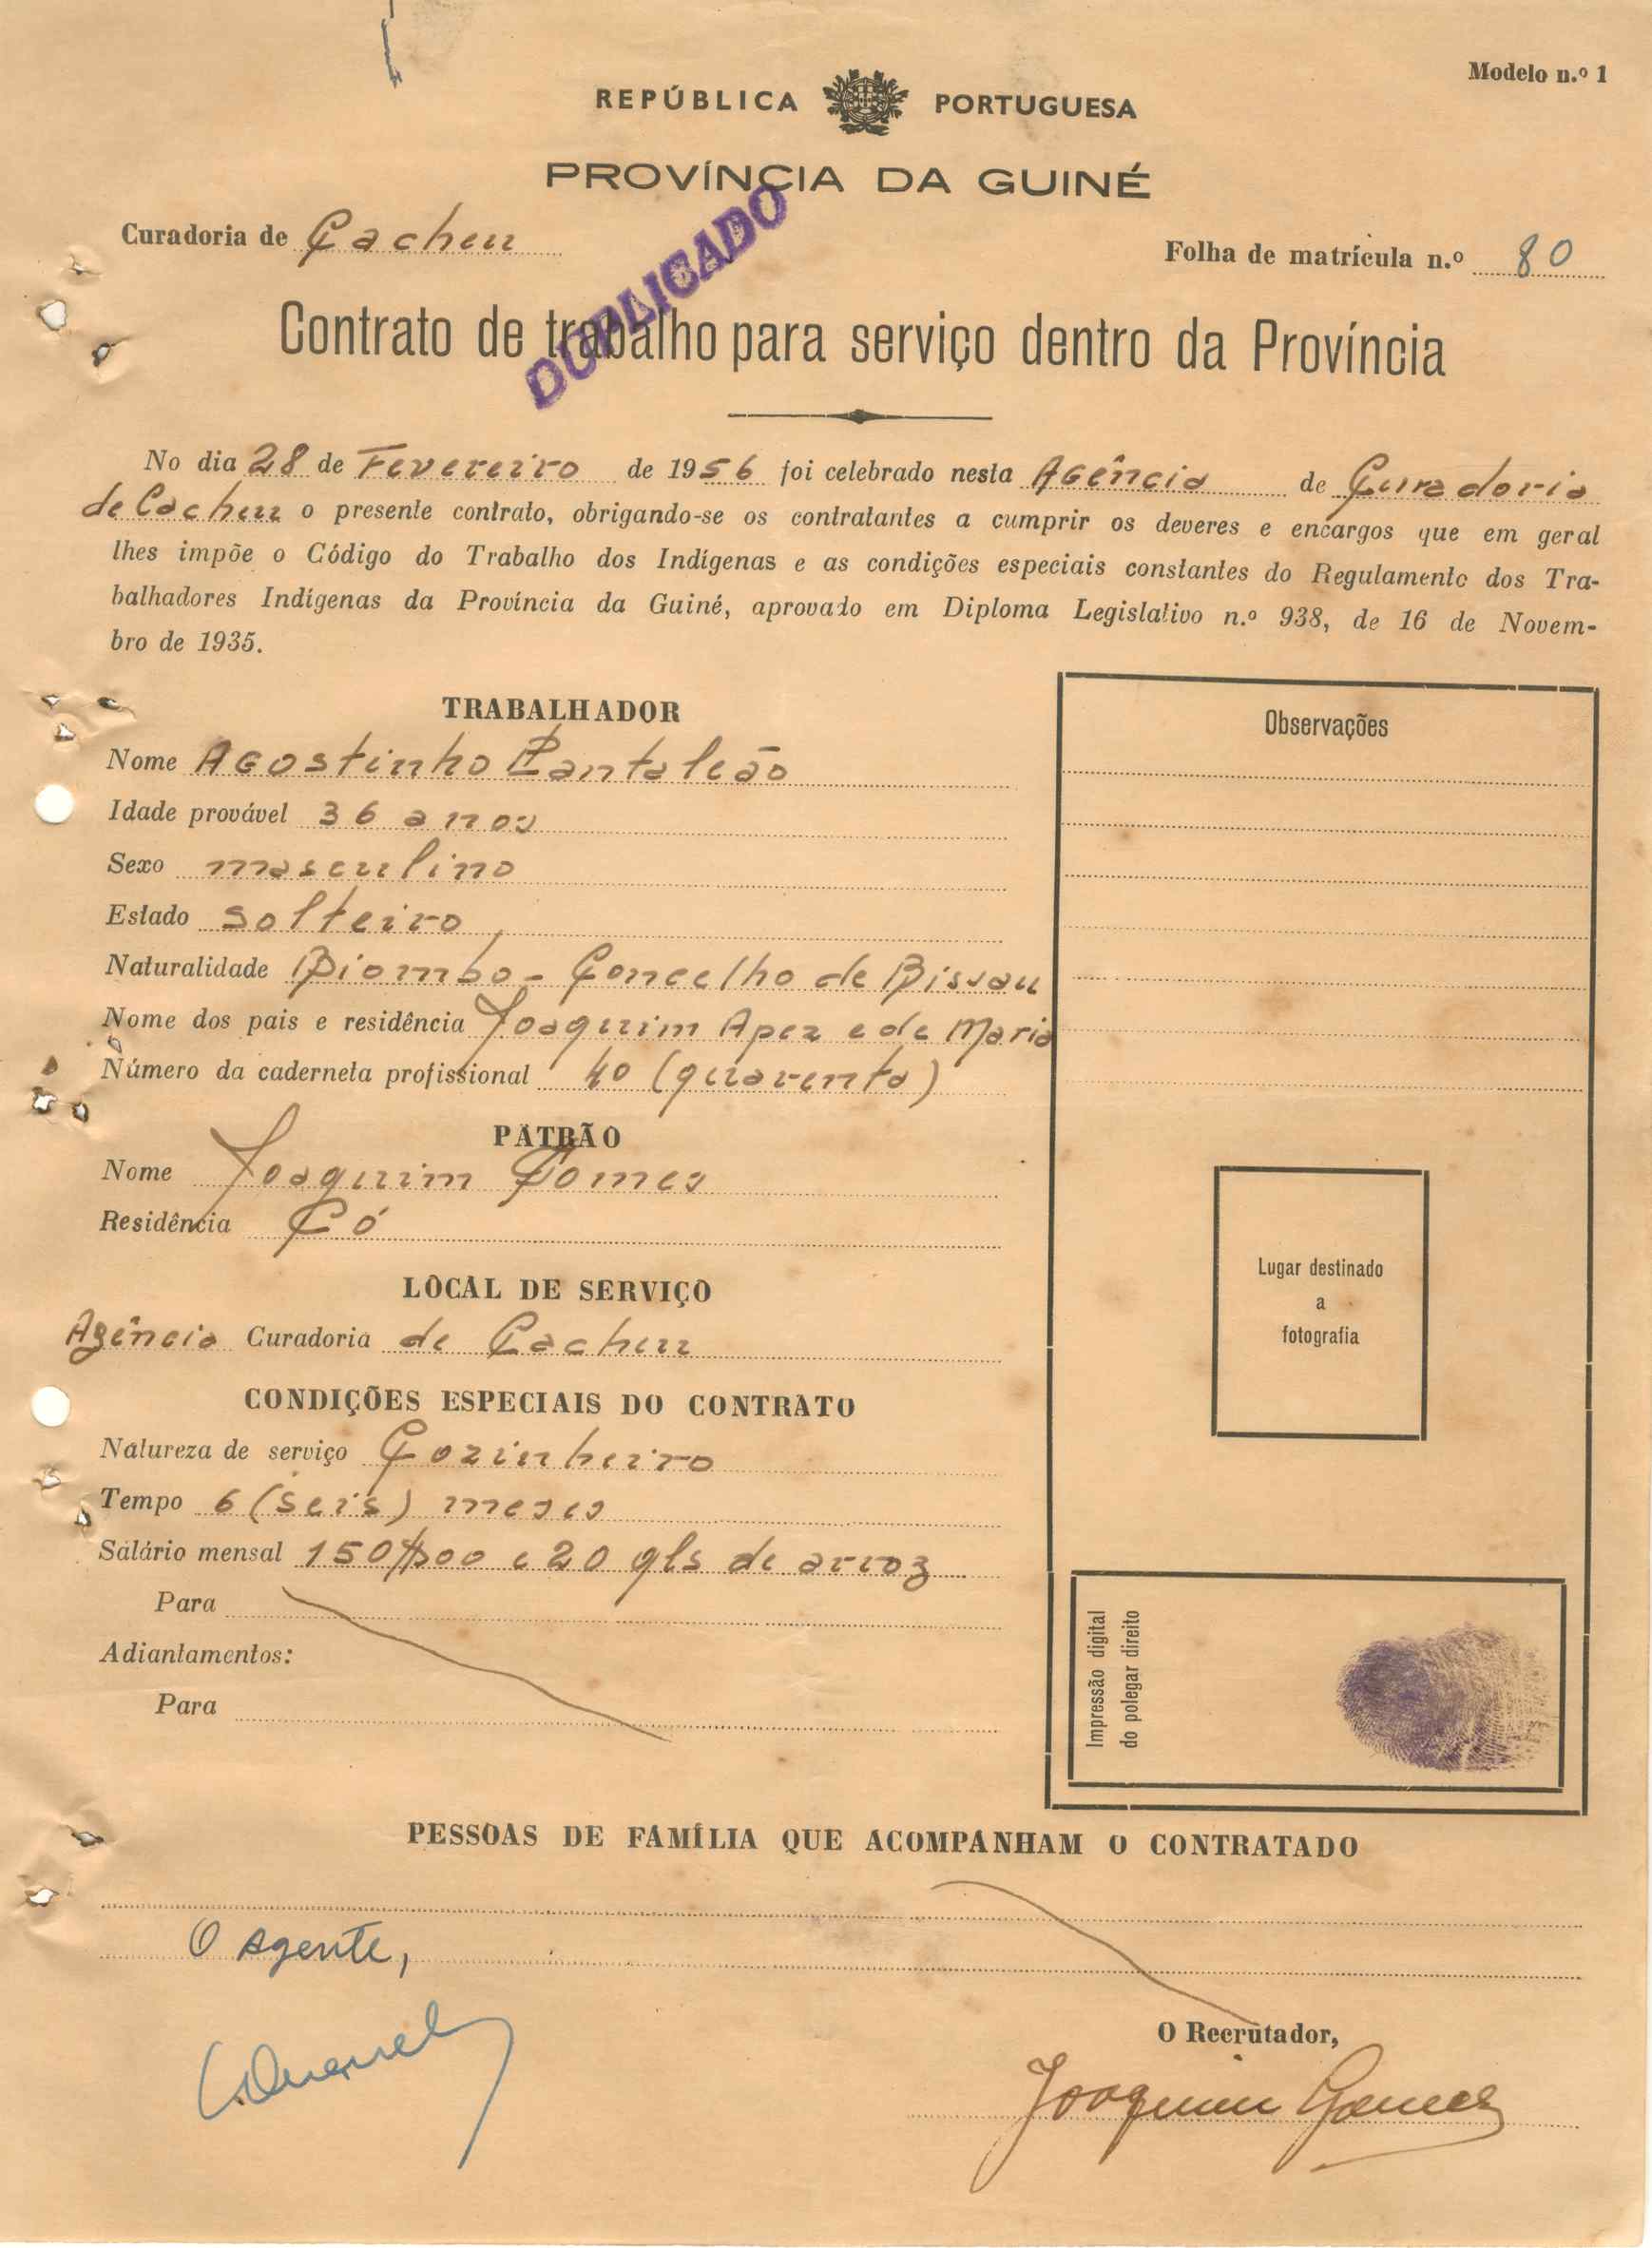 Modelo n.º 1
REPÚBLICA PORTUGUESA
PROVÍNCIA DA GUINÉ
Curadoria de Cacheu
Folha de matrícula n.º 80
DUPLICADO
Contrato de trabalho para serviço dentro da Província
No dia 28 de Fevereiro de 1956 foi celebrado nesta Agência de Curadoria
de Cacheu o presente contrato, obrigando-se os contratantes a cumprir os deveres e encargos que em geral
lhes impõe o Código do Trabalho dos Indígenas e as condições especiais constantes do Regulamento dos Tra-
balhadores Indígenas da Província da Guiné, aprovado em Diploma Legislativo n.º 938, de 16 de Novem-
bro de 1935.
TRABALHADOR
Nome Agostinho Pantaleão
Idade provável 36 anos
Sexo masculino
Estado solteiro
Naturalidade Biombo - Concelho de Bissau
Nome dos pais e residência Joaquim Apez e de Maria
Número da caderneta profissional 40 (quarenta)
PATRÃO
Nome Joaquim Gomes
Residência Có
LOCAL DE SERVIÇO
Agência Curadoria de Cacheu
CONDIÇÕES ESPECIAIS DO CONTRATO
Natureza de serviço Cozinheiro
Tempo 6 (seis) meses
Salário mensal 150$00 e 20 qls de arroz
Para
Adiantamentos:
Para
Observações
Lugar destinado
a
fotografia
Impressão digital
do polegar direito
PESSOAS DE FAMÍLIA QUE ACOMPANHAM O CONTRATADO
O Agente,
O Recrutador,
Joaquim Gomes